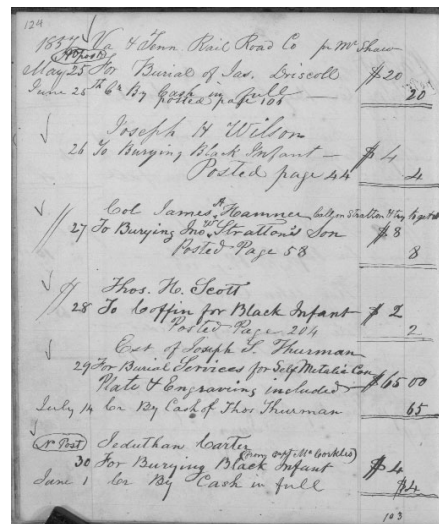 124
1857 Va & Tenn. Rail Road Co pr Mr Shaw
N Post
May 25 For Burial of Jas. Driscoll $20
June 25th Cr By Cash in full 20
posted page 106
Joseph H Wilson
26 To Burying Black Infant — $4
Posted page 44 4
Col James Hamner
27 To Burying Jno W Stratton's Son $8
Posted Page 58 8
Thos. H. Scott
28 To Coffin for Black Infant $2
Posted Page 204 2
Est of Joseph T. Thurman
29 For Burial Services for Self Metalic
Plate & Engraving included $65 00
July 14 Cr By Cash of Thos Thurman 65
N Post Jeduthan Carter
30 For Burying Black Infant $4
June 1 Cr By Cash in full $4
103